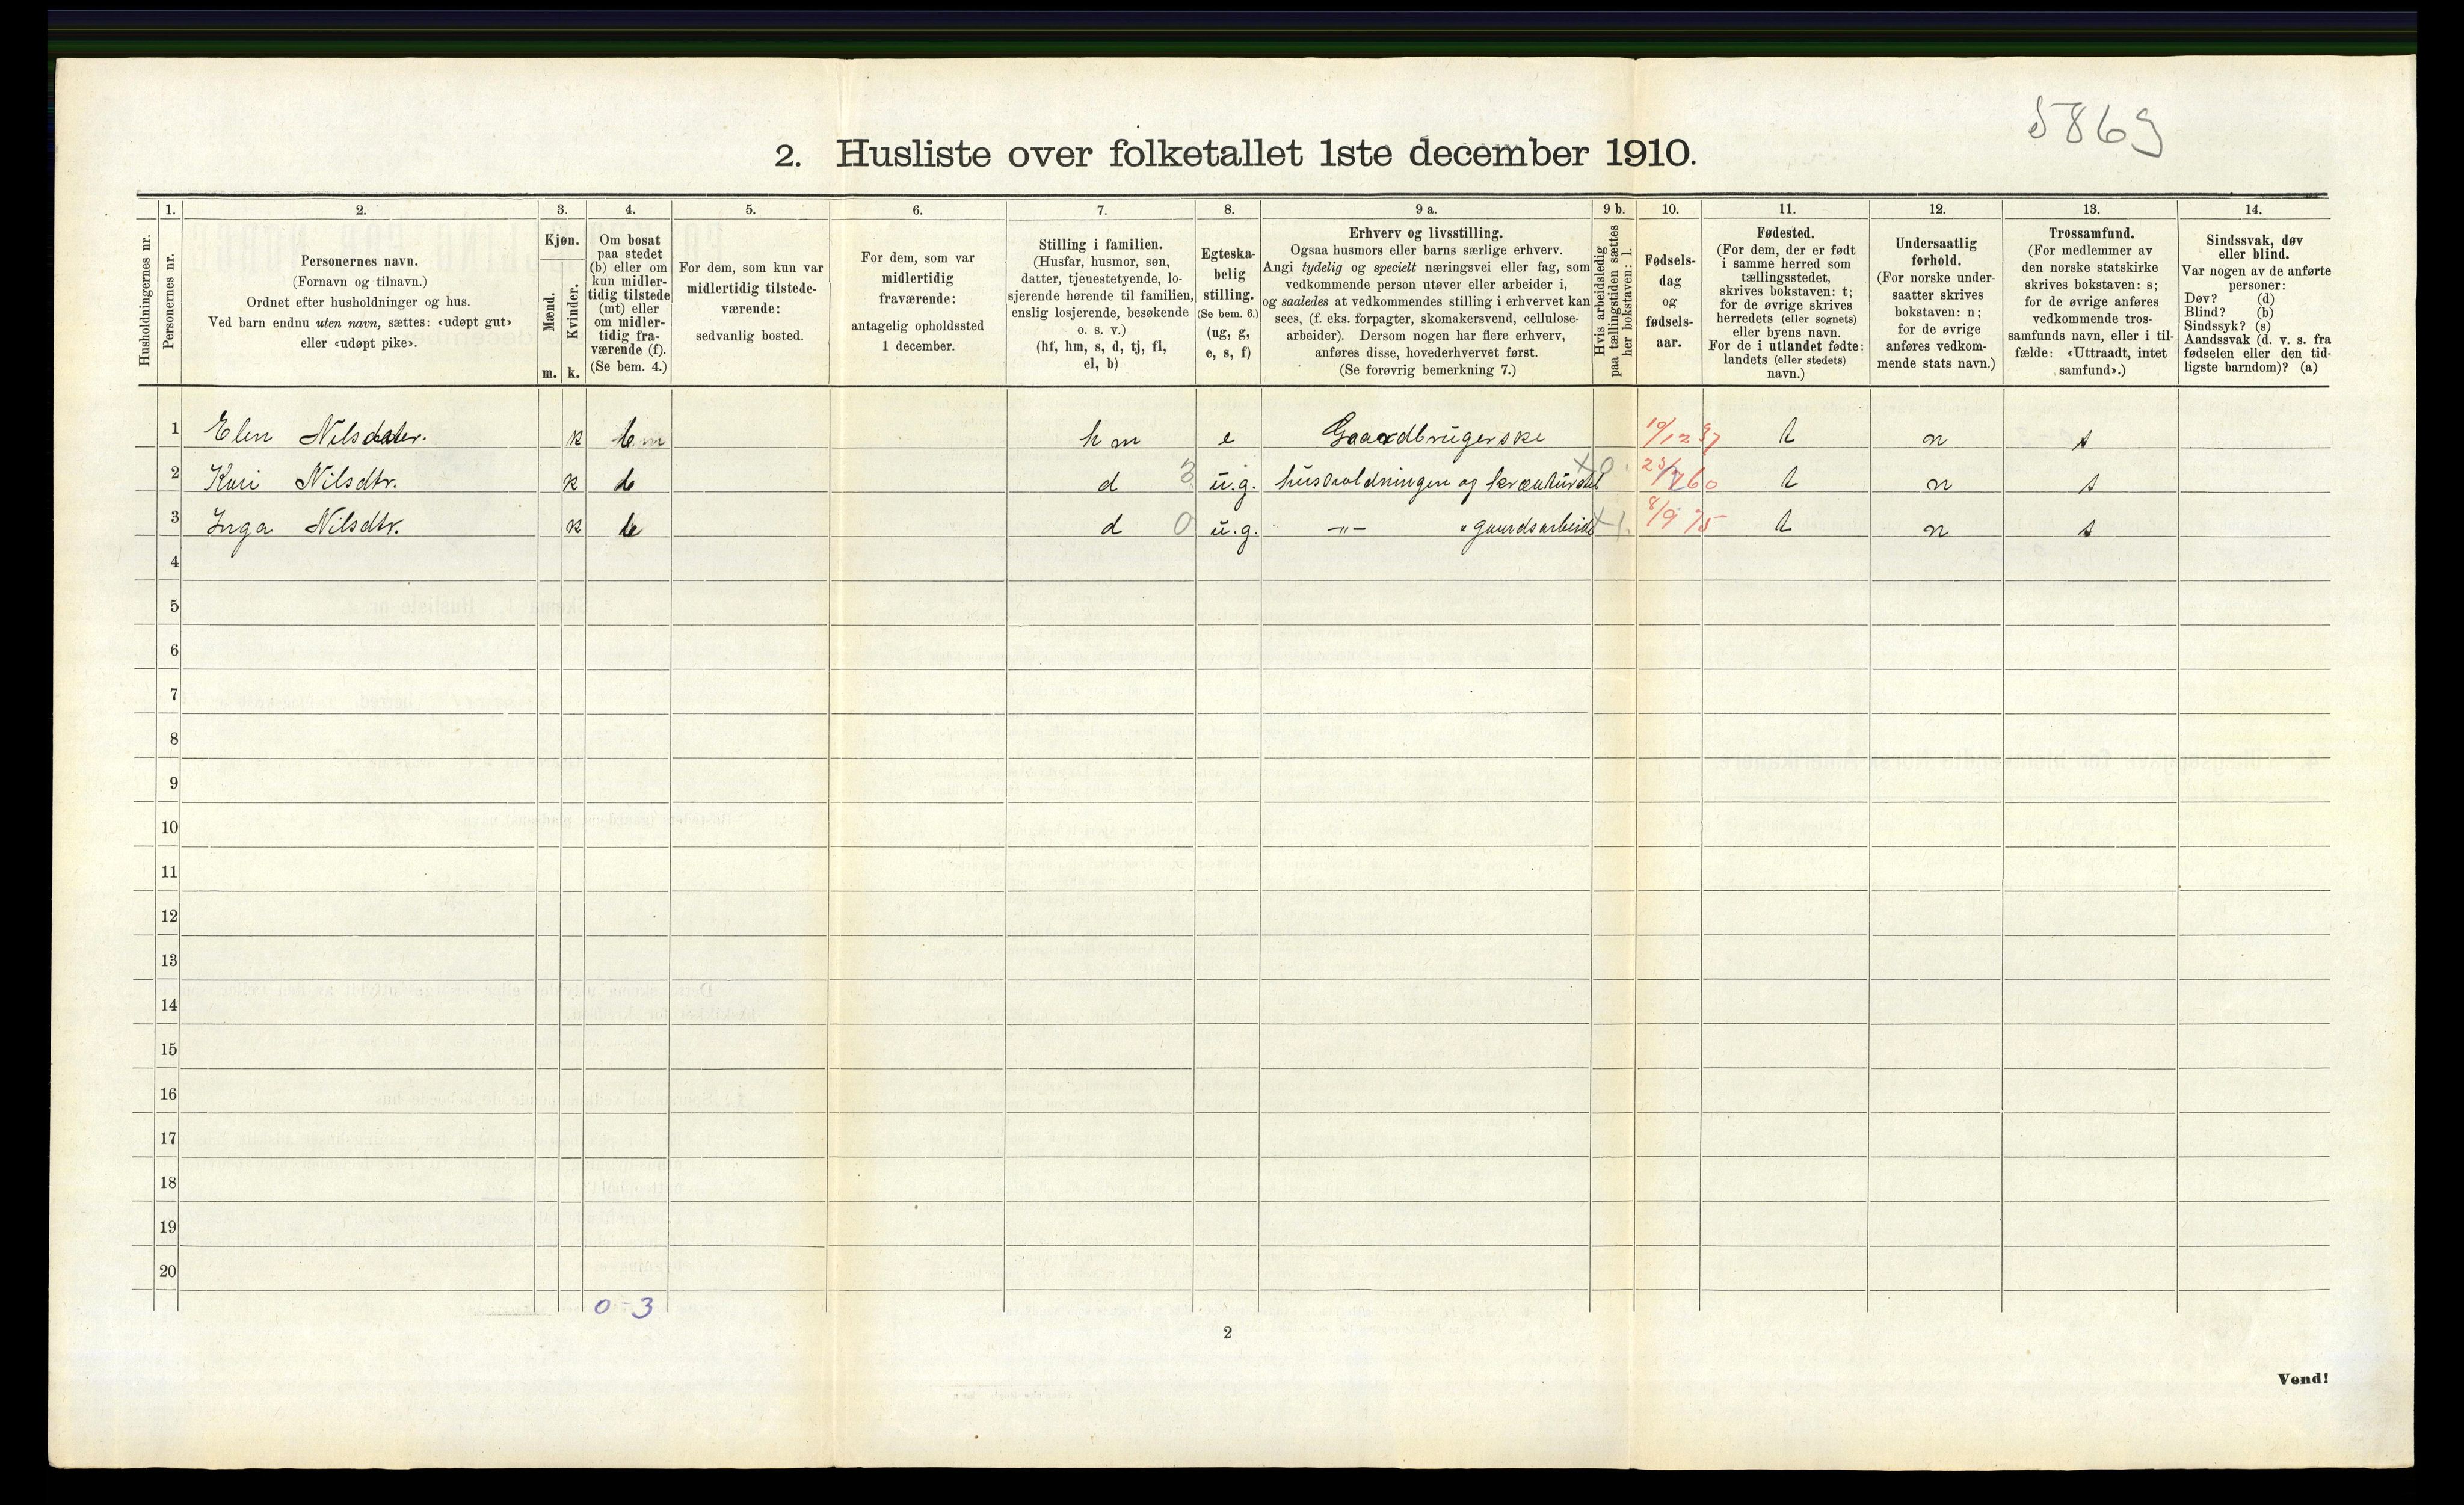 5869
2. Husliste over folketallet 1ste december 1910.
Husholdningernes nr.
1.
Personernes nr.
2.
Personernes navn.
(Fornavn og tilnavn.)
Ordnet efter husholdninger og hus.
Ved barn endnu uten navn, sættes: «udøpt gut»
eller «udøpt pike».
3.
Kjøn.
Mænd.
Kvinder.
m. k.
4.
Om bosat
paa stedet
(b) eller om
kun midler-
tidig tilstede
(mt) eller
om midler-
tidig fra-
værende (f).
(Se bem. 4.)
5.
For dem, som kun var
midlertidig tilstede-
værende:
sedvanlig bosted.
6.
For dem, som var
midlertidig
fraværende:
antagelig opholdssted
1 december.
7.
Stilling i familien.
(Husfar, husmor, søn,
datter, tjenestetyende, lo-
sjerende hørende til familien,
enslig losjerende, besøkende
o. s. v.)
(hf, hm, s, d, tj, fl,
el, b)
8.
Egteska-
belig
stilling.
(Se bem. 6.)
(ug, g,
e, s, f)
9 a.
Erhverv og livsstilling.
Ogsaa husmors eller barns særlige erhverv.
Angi tydelig og specielt næringsvei eller fag, som
vedkommende person utøver eller arbeider i,
og saaledes at vedkommendes stilling i erhvervet kan
sees, (f. eks. forpagter, skomakersvend, cellulose-
arbeider). Dersom nogen har flere erhverv,
anføres disse, hovederhvervet først.
(Se forøvrig bemerkning 7.)
9 b.
Hvis arbeidsledig
paa tællingstiden sættes
her bokstaven: l.
10.
Fødsels-
dag
og
fødsels-
aar.
11.
Fødested.
(For dem, der er født
i samme herred som
tællingsstedet,
skrives bokstaven: t;
for de øvrige skrives
herredets (eller sognets)
eller byens navn.
For de i utlandet fødte:
landets (eller stedets)
navn.)
12.
Undersaatlig
forhold.
(For norske under-
saatter skrives
bokstaven: n;
for de øvrige
anføres vedkom-
mende stats navn.)
13.
Trossamfund.
(For medlemmer av
den norske statskirke
skrives bokstaven: s;
for de øvrige anføres
vedkommende tros-
samfunds navn, eller i til-
fælde: «Uttraadt, intet
samfund».)
14.
Sindssvak, døv
eller blind.
Var nogen av de anførte
personer:
Døv? (d)
Blind? (b)
Sindssyk? (s)
Aandssvak (d. v. s. fra
fødselen eller den tid-
ligste barndom)? (a)
1 Elen Nilsdatter. k b hm e Gaardbrugerske 10/12 37 t n s
2 Kari Nilsdtr. k b d 3 u.g. husholdningen og kreaturstel 0. 60 t n s
3 Inga Nilsdtr. k b d 0 u.g. -"- " gaardsarbeide 8/9 75 t n s
4
5
6
7
8
9
10
11
12
13
14
15
16
17
18
19
20
0-3
2
Vend!